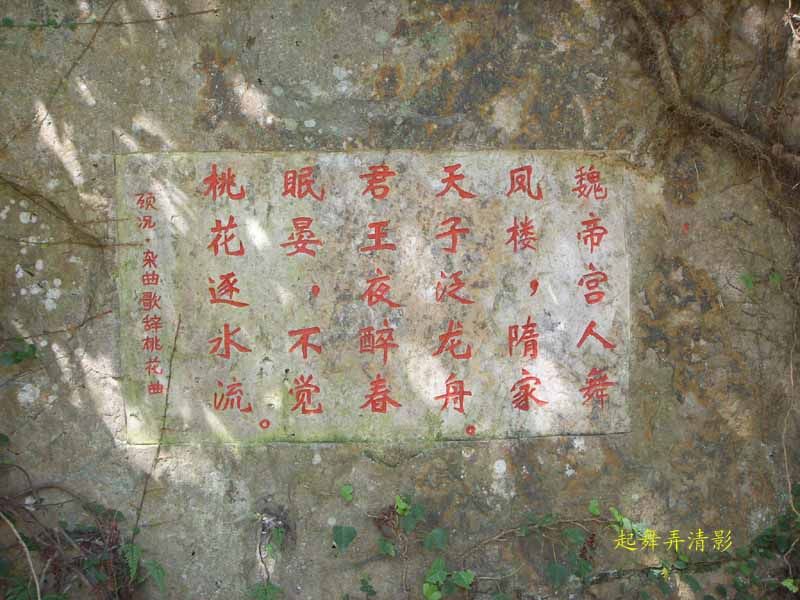 魏帝宫人舞
凤楼，隋家
天子泛龙舟。
君王夜醉春
眠晏，不觉
桃花逐水流。
顾况·杂曲歌辞桃花曲
起舞弄清影